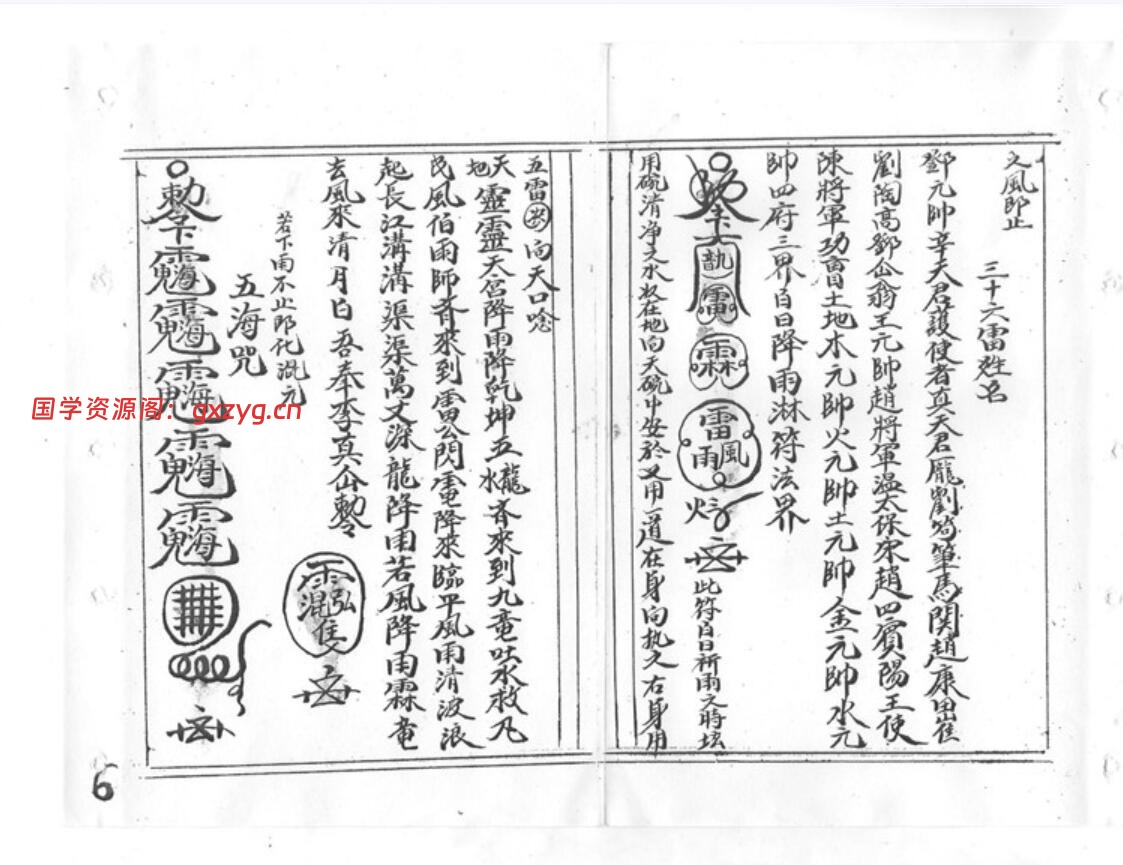 之風即止
三十六雷姓名
鄧元帥辛天君護使者真天君龐劉筍畢馬関趙康
劉陶高鄧仚翁王元帥趙將軍温太保宋趙四賓陽王使
陳將軍功曹土地木元帥火元帥土元帥金元帥水元
帥四府三界白日降雨淋符法界
雷
霖
雷雨風
此符白日祈雨之時
用碗清净之水放在地向天碗中安於又用一道在身向执久右身用
五雷向天口唸
天地靈靈天宮降雨降乾坤五龍水齐來到九竜吐水救凡
民風伯雨師齐來到雷公閃電降來臨平風雨清波浪
起長江溝溝渠渠萬丈深龍降雨若風降雨霖竜
去風來清月白吾奉李真仚勅令
若下雨不止即化混元
五海咒
勅令
国学资源阁：gxzyg.cn
6